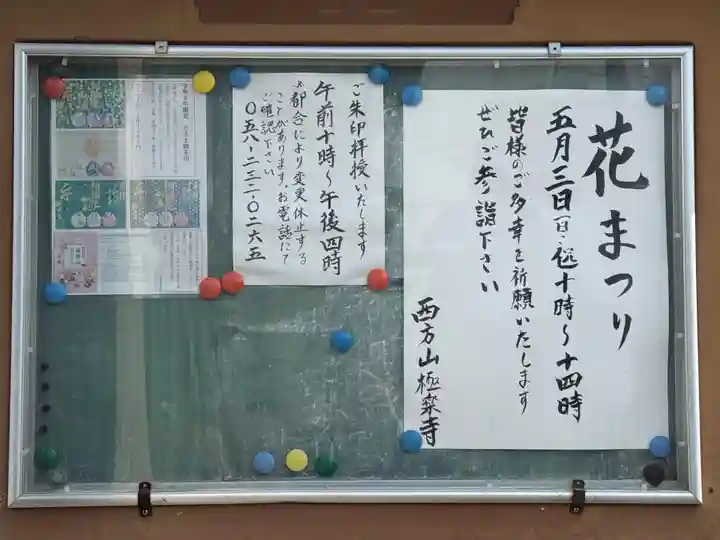 花まつり
五月三日(日・祝)十時〜十四時
皆様のご多幸を祈願いたします
ぜひご参詣下さい
西方山極楽寺
ご朱印拝授いたします
午前十時〜午後四時
※都合により変更休止する
ことがあります。お電話にて
ご確認下さい
〇五八・二三二・〇二六五